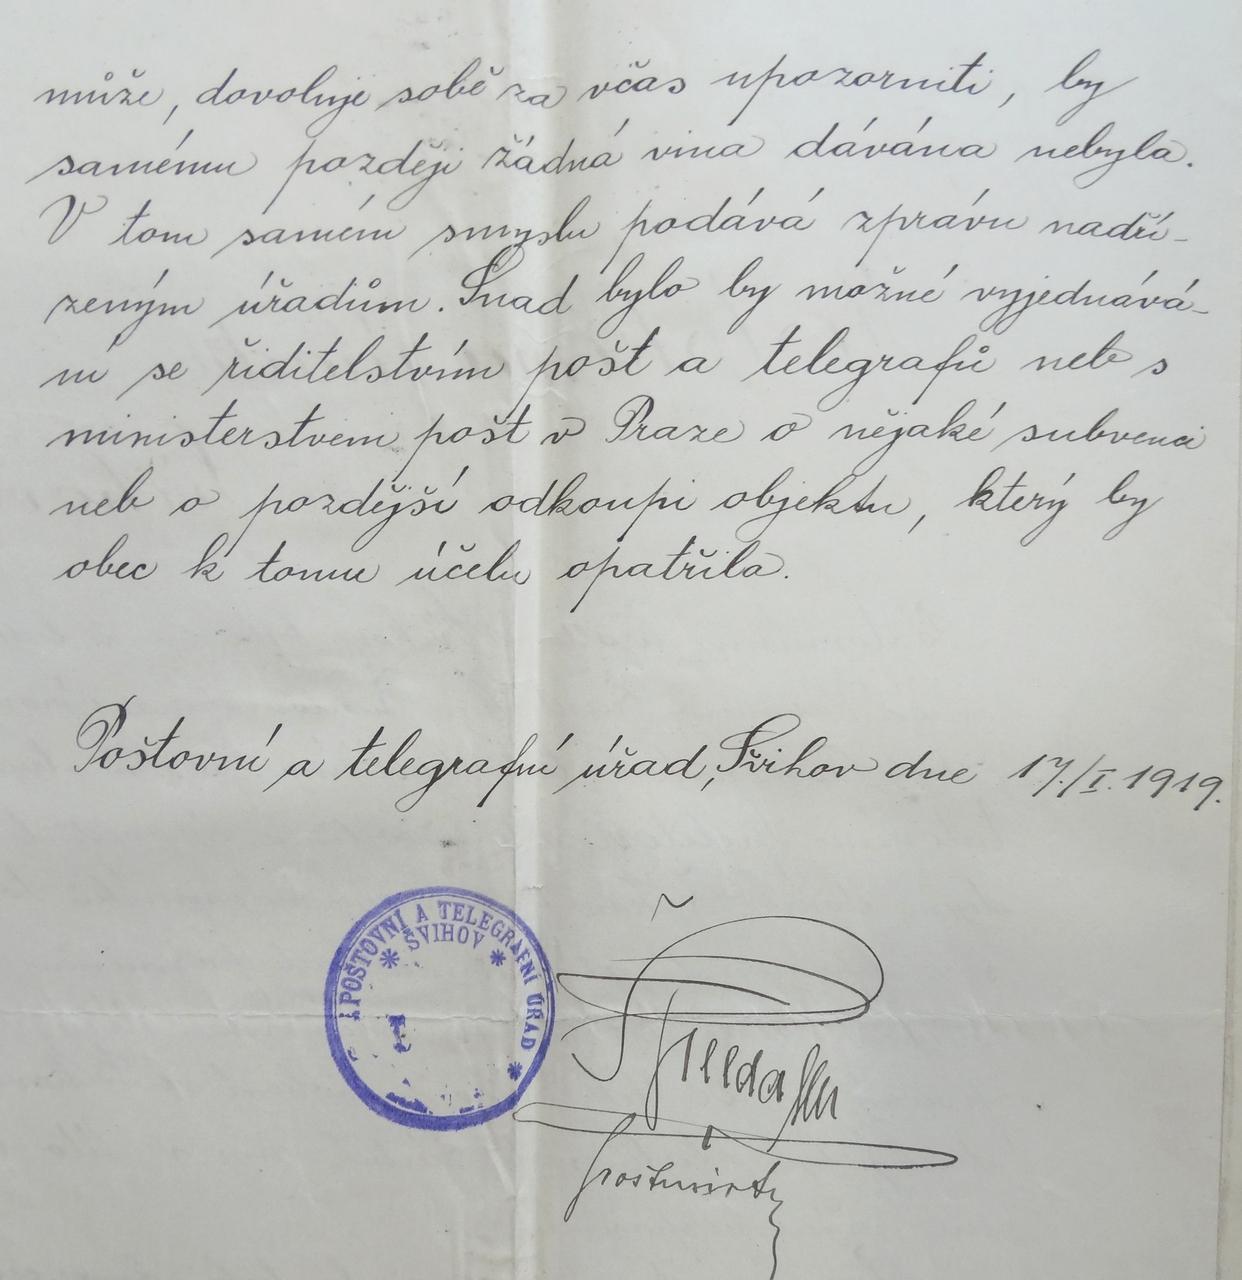 může, dovoluje sobě za včas upozorniti, by
samému později žádná vina dávána nebyla.
V tom samém smyslu podává zprávu nadří-
zeným úřadům. Snad bylo by možné vyjednává-
ní se řiditelstvím pošt a telegrafů neb s
ministerstvem pošt v Praze o nějaké subvenci
neb o pozdější odkoupi objektu, který by
obec k tomu účelu opatřila.
Poštovní a telegrafní úřad, Švihov dne 17./I. 1919.
POŠTOVNÍ A TELEGRAFNÍ ÚŘAD
ŠVIHOV